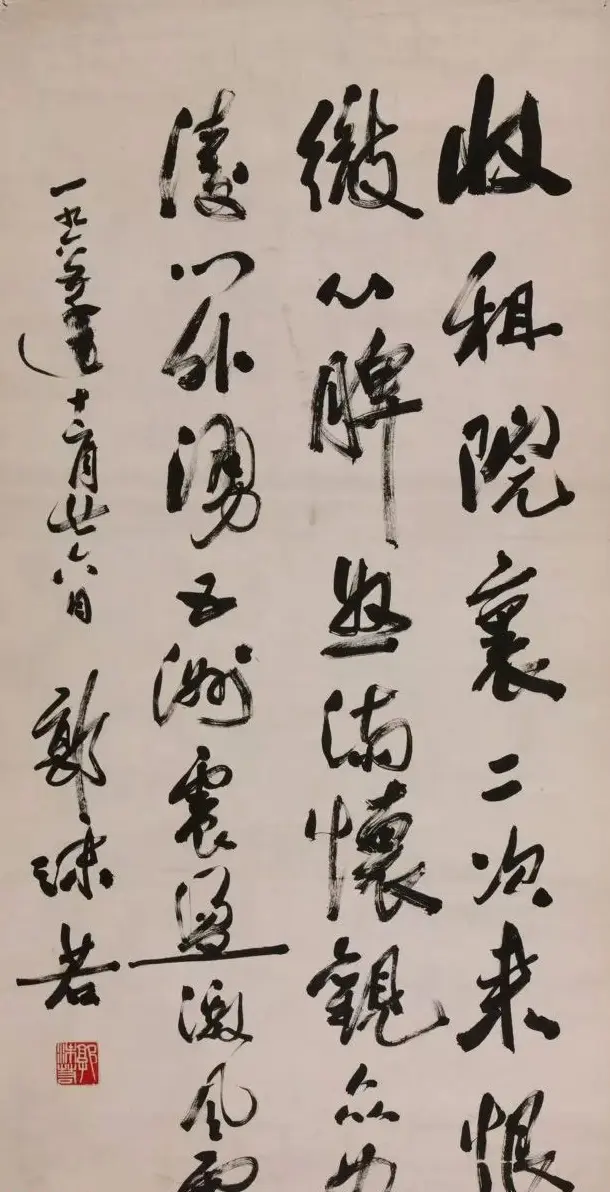 收租院裏二次来恨
徹心脾怒滿懷觀众如
濤门外湧五洲震盪激风雷
一九六五年十二月廿六日 郭沫若
郭沫若